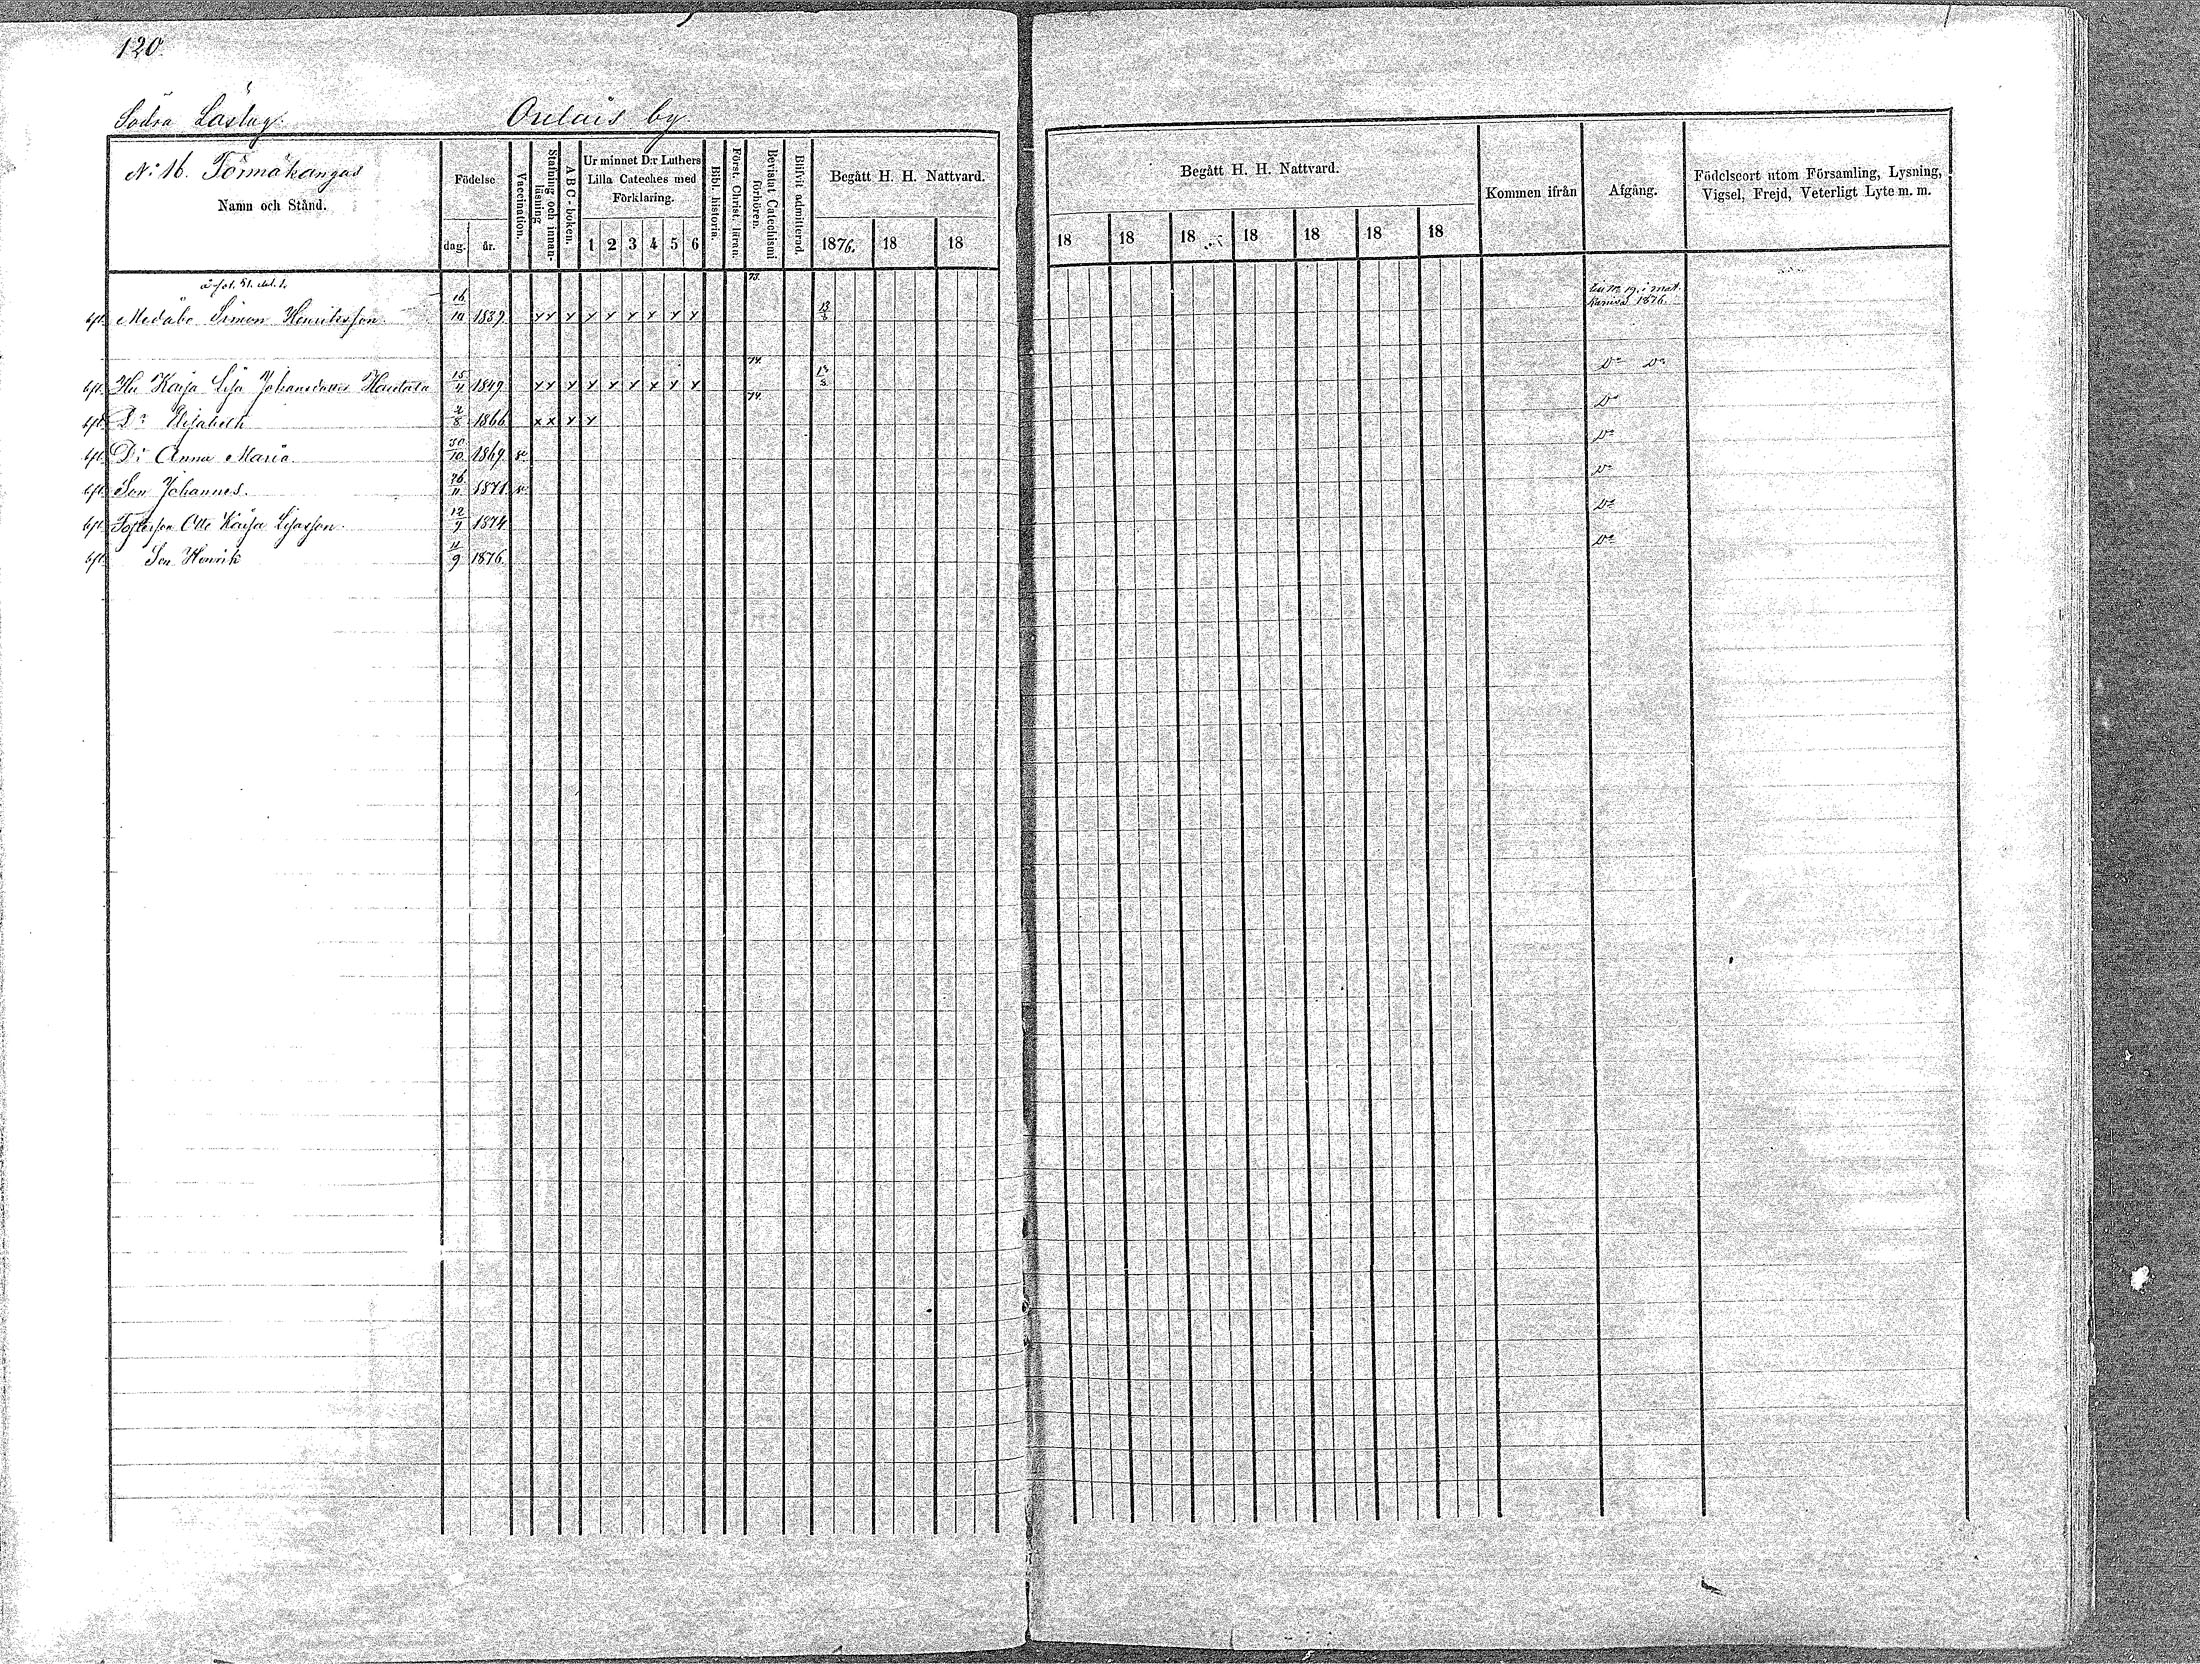 120.
Södra Låslag. Oulais by
N:o 16. Törmäkangas
Namn och Stånd.
Födelse
dag. år.
Vaccination.
Stafning och innanläsning
A B C - boken.
Ur minnet D:r Luthers Lilla Cateches med Förklaring.
1 2 3 4 5 6
Bibl. historia.
Först. Christ. läran.
Bevistat Catechismi förhören.
Blifvit admitterad.
Begått H. H. Nattvard.
1876. 18 18
Begått H. H. Nattvard.
18 18 18 18 18 18 18
Kommen ifrån
Afgång.
Födelseort utom Församling, Lysning, Vigsel, Frejd, Veterligt Lyte m. m.
75.
Medåbo Simon Henriksson 16/10 1839 x x x x x x x x x 13/8
1876
74.
Hu Kajsa Lisa Johansdotter 15/11 1849 x x x x x x x x x 13/8 Do Do
74.
Dr Elisabeth 2/8 1866 x x x x Do
Dr Anna Maria 30/10 1869 v. Do
Son Johannes. 26/11 1871 v. Do
Otto Kajsa Lisasson 12/9 1874 Do
Son Henrik 11/9 1876. Do